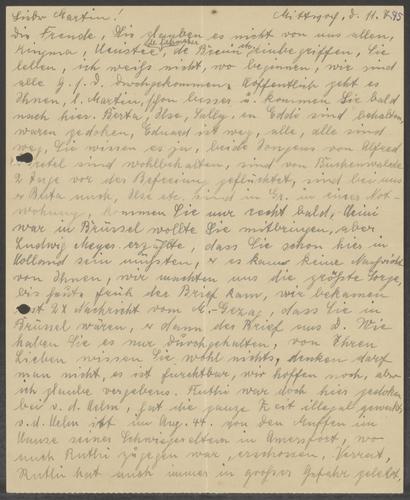 Lieber Martin! Mittwoch, d. 11.7.45
Die Freude, Sie glauben es nicht von uns allen,
de Bruin inbegriffen, Sie
leben, ich weiss nicht, wo beginnen, wie sind
alle G.s.d. durchgekommen. Hoffentlich geht es
Ihnen, l. Martin, schon besser u. kommen Sie bald
nach hier. Berta, Ilse, Sally, en Eddi sind behalten,
waren gedoken, Eduard ist weg, alle, alle sind
weg, Sie wissen es ja, beide Jungens von Alfred
sind wohlbehalten, sind von Buchenwalde
2 Tage vor der Befreiung geflüchtet, sind bei uns
Berta auch, Ilse etc. sind in Gr. in einer Not-
wohnung, kommen Sie nur recht bald,
war in Brüssel wollte Sie mitbringen, aber
Ludwig Meyer erzählte, dass Sie schon hier in
Holland sein müssten, es kam keine Nachricht
von Ihnen, wir machten uns die grösste Sorge,
bis heute früh der Brief kam, wir bekamen
erst 2x Nachricht vom dass Sie in
Brüssel wären, dann der Brief aus d. Wie
haben Sie es nur durchgehalten, von Ihren
Lieben wissen Sie wohl nichts, denken darf
man nicht, es ist furchtbar, wir hoffen noch, aber
ich glaube vergebens. Ruthi war doch hier gedoken
bei v.d. Helm, hat die ganze Zeit illegal gewerkt,
v.d. Helm ist im Aug. 44. von den Muffen im
Hause seiner Schwiegereltern in Amersfort, wo
auch Ruthi zugegen war, erschossen, Verrat,
Ruthi hat auch immer in grosser Gefahr gelebt,